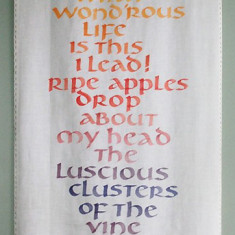 WOND'ROUS
LIFE
IS THIS
I LEAD!
RIPE APPLES
DROP
ABOUT
MY HEAD
THE
LUSCIOUS
CLUSTERS
OF THE
VINE